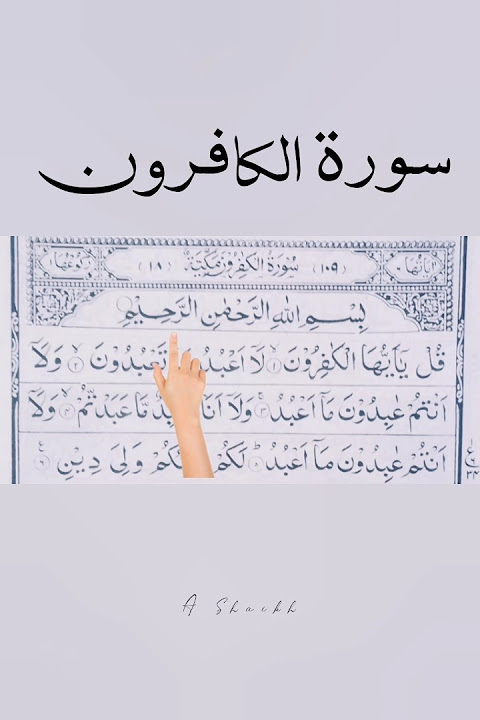 سورة الكافرون
(١٠٩) سُوْرَةُ الْكٰفِرُوْنَ مَكِّيَّةٌ (١٨)
بِسْمِ اللّٰهِ الرَّحْمٰنِ الرَّحِيْمِ
قُلْ يٰۤاَيُّهَا الْكٰفِرُوْنَ ۝١ لَاۤ اَعْبُدُ تَعْبُدُوْنَ ۝٢ وَلَاۤ
اَنْتُمْ عٰبِدُوْنَ مَاۤ اَعْبُدُ ۝٣ وَلَاۤ اَنَا مَّا عَبَدْتُّمْ ۝٤ وَلَاۤ
اَنْتُمْ عٰبِدُوْنَ مَاۤ اَعْبُدُ ۝٥ لَكُمْ وَلِيَ دِيْنِ ۝٦
A Shaikh